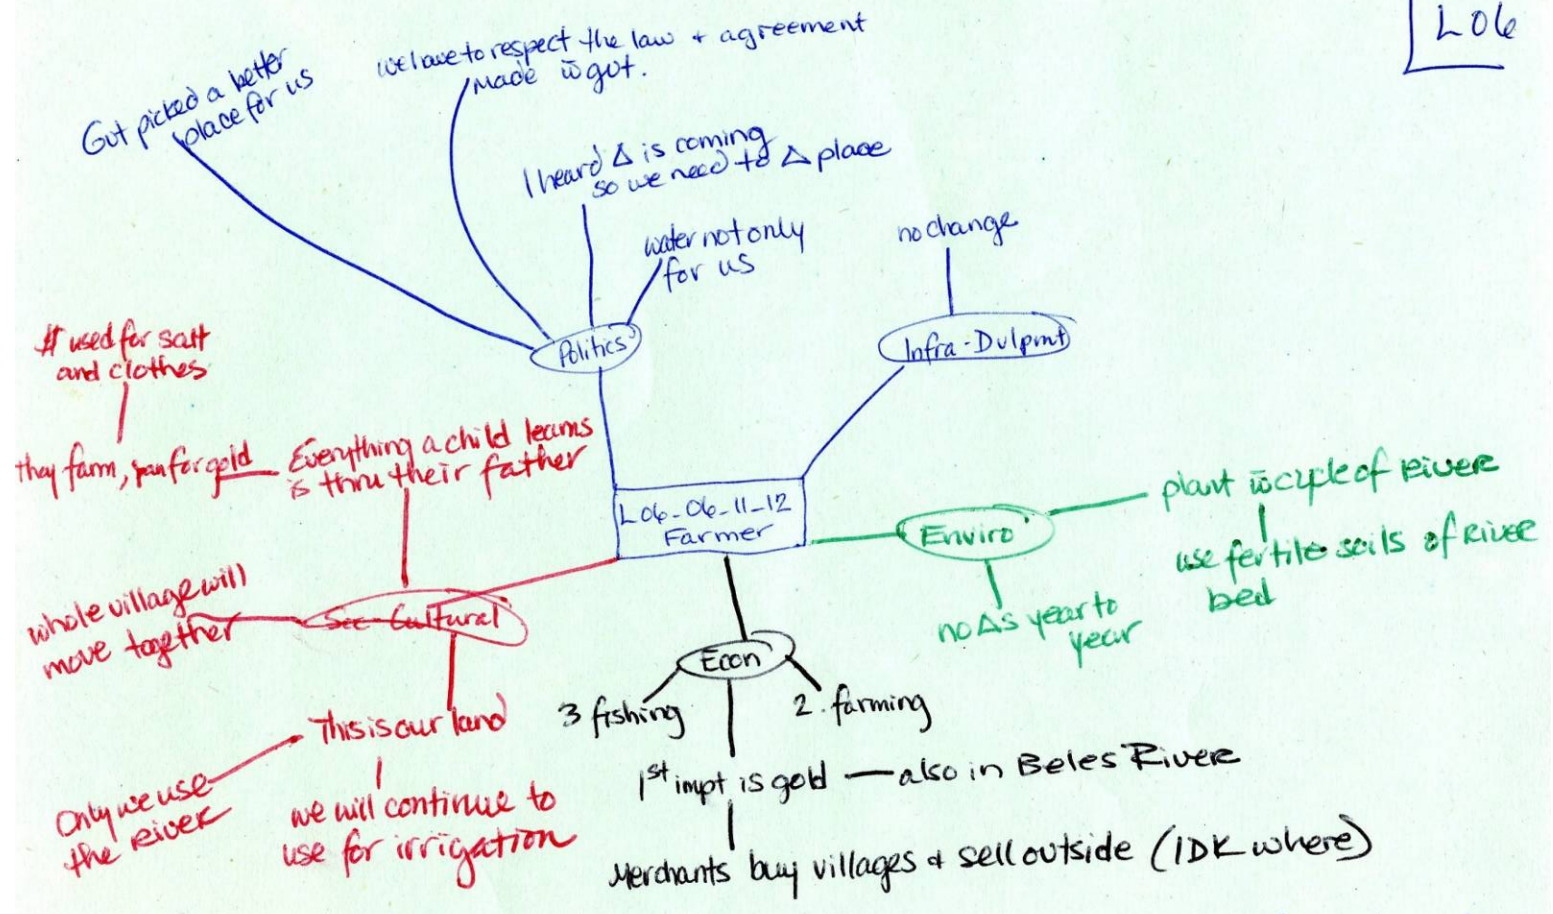 L06
Gvt picked a better
place for us
we have to respect the law + agreement
made w̄ gvt.
I heard Δ is coming
so we need to Δ place
water not only
for us
no change
Politics
Infra-Dvlpmt
$ used for salt
and clothes
they farm, pan for gold
Everything a child learns
is thru their father
L06-06-11-12
Farmer
Enviro
plant w̄ cycle of RIVER
use fertile soils of RIVER
bed
no Δs year to
year
whole village will
move together
Soc-Cultural
Econ
3 fishing
2. farming
This is our land
Only we use
the RIVER
we will continue to
use for irrigation
1st impt is gold — also in Beles River
Merchants buy villages & sell outside (IDK where)